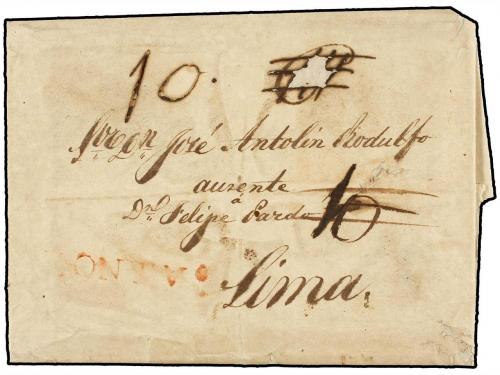 10.
Sor Dn José Antolin Rodulfo
ausente
a
Dn Felipe Pardo 10
Lima.